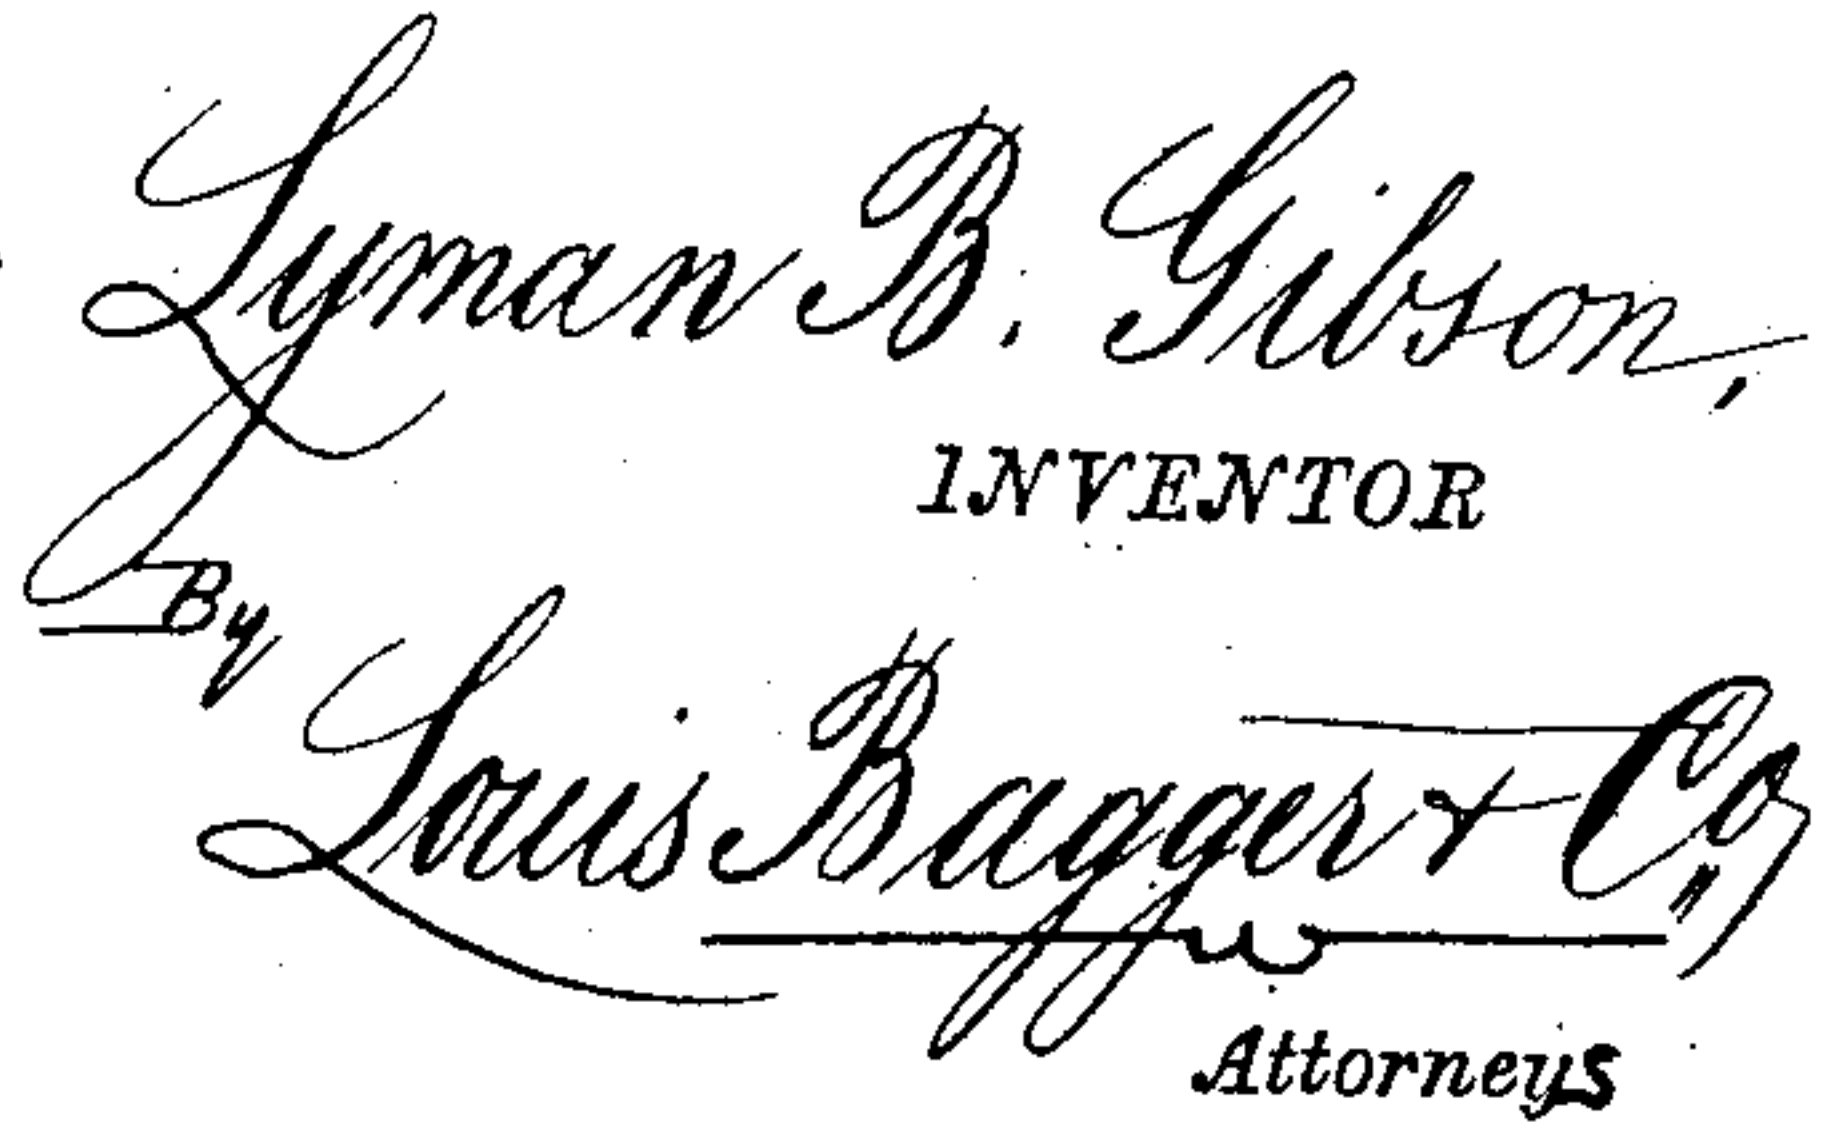 Lyman B. Gibson,
INVENTOR
By
Louis Bagger & Co,
Attorneys